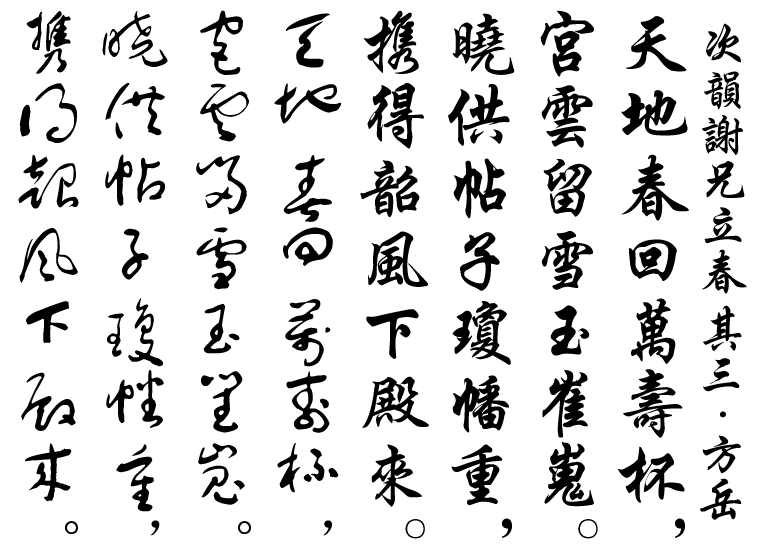 次韻謝兄立春其三·方岳
天地春回萬壽杯，
宮雲留雪玉崔嵬。
曉供帖子瓊幡重，
攜得韶風下殿來。
天地春回萬壽杯，
宮雲留雪玉崔嵬。
曉供帖子瓊幡重，
攜得韶風下殿來。